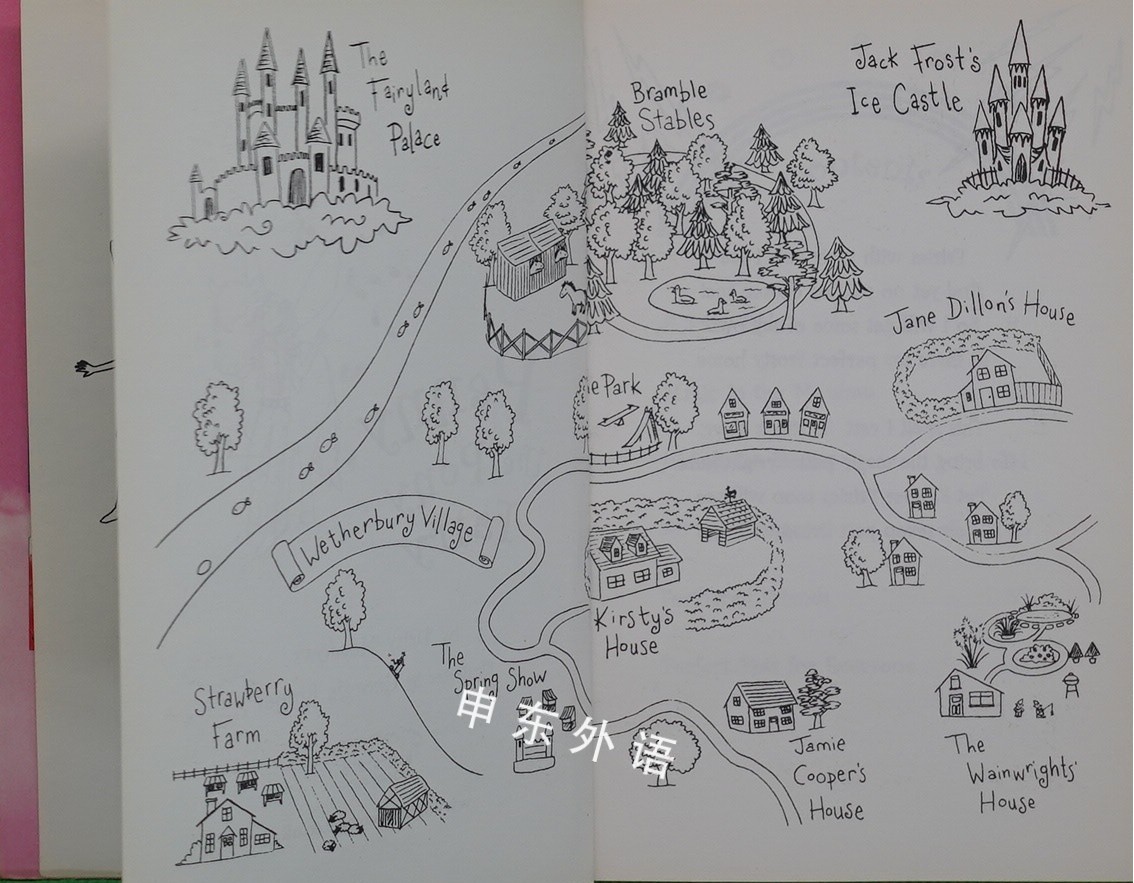 The
Fairyland
Palace
Bramble
Stables
Jack Frost's
Ice Castle
Jane Dillon's House
Park
Wetherbury Village
Kirsty's
House
The
Spring Show
Strawberry
Farm
Jamie
Cooper's
House
The
Wainwrights'
House
申东外语